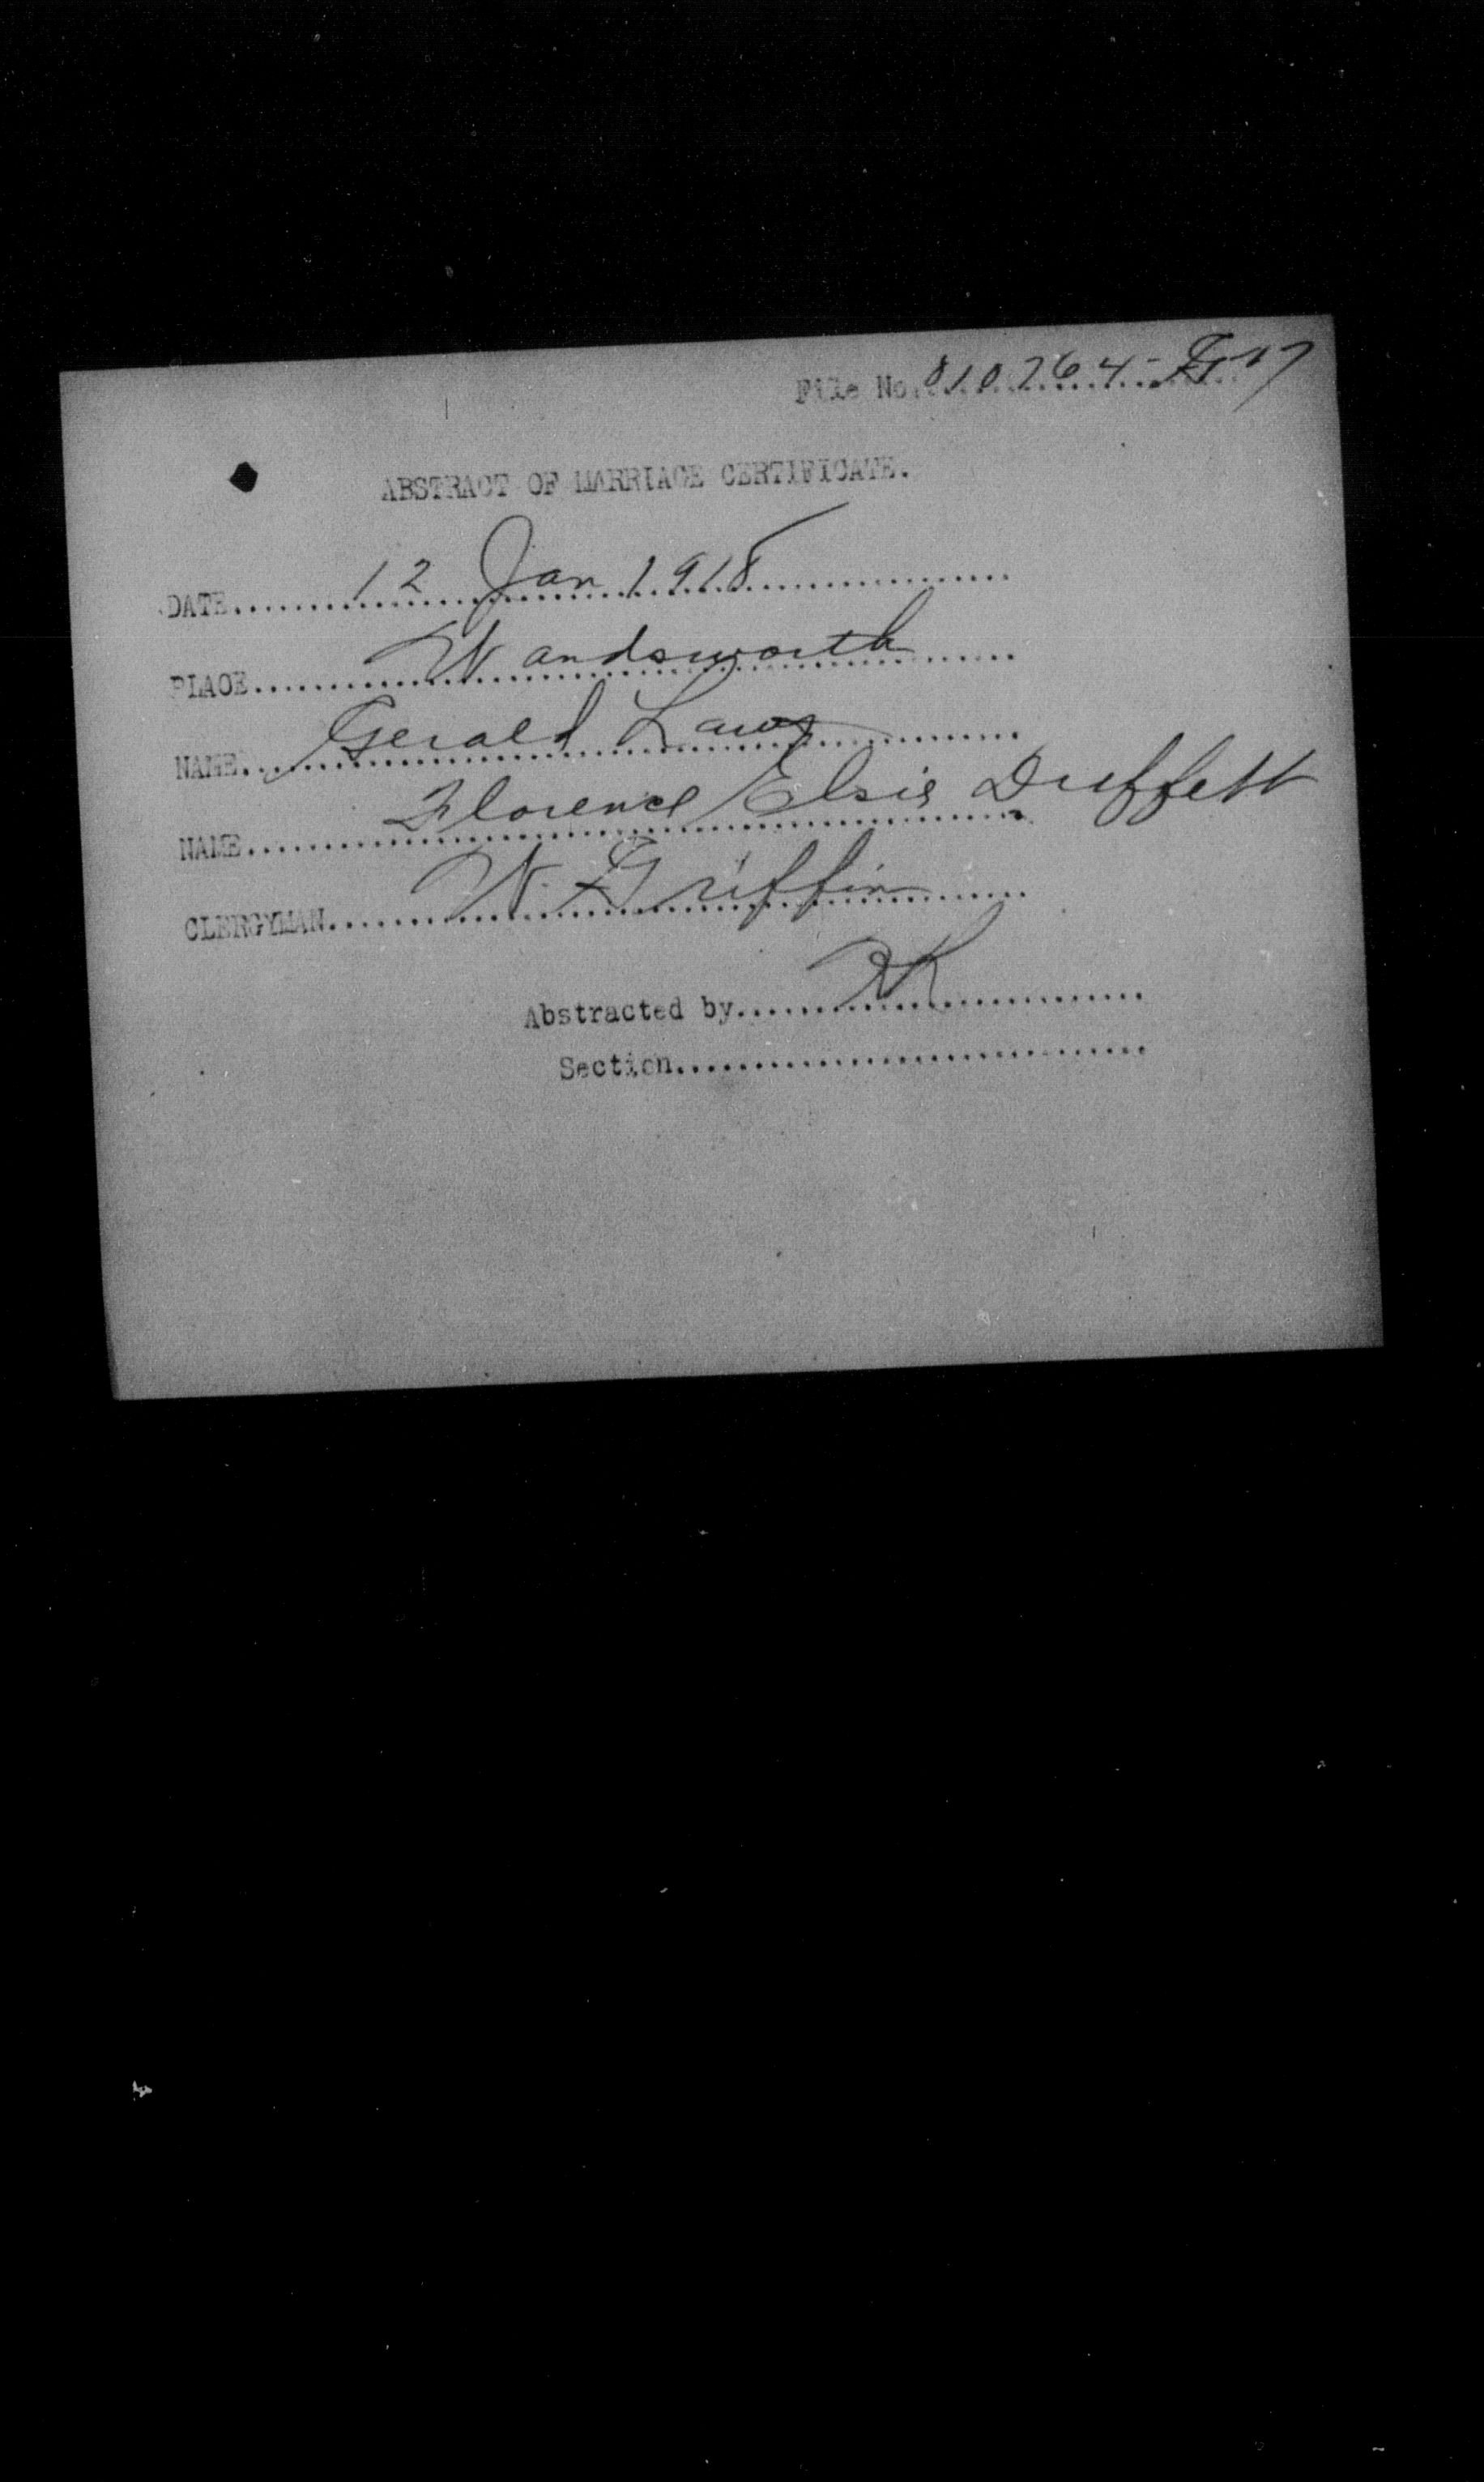 File No. 810764-G-17
ABSTRACT OF MARRIAGE CERTIFICATE.
DATE 12 Jan 1918
PLACE Wandsworth
NAME Gerald Laws
NAME Florence Elsie Duffett
CLERGYMAN W. Griffin
Abstracted by RK
Section